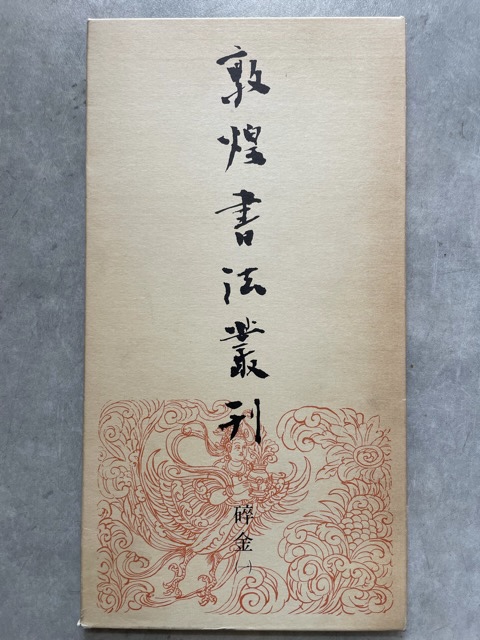 敦煌書法叢刊
碎金(一)